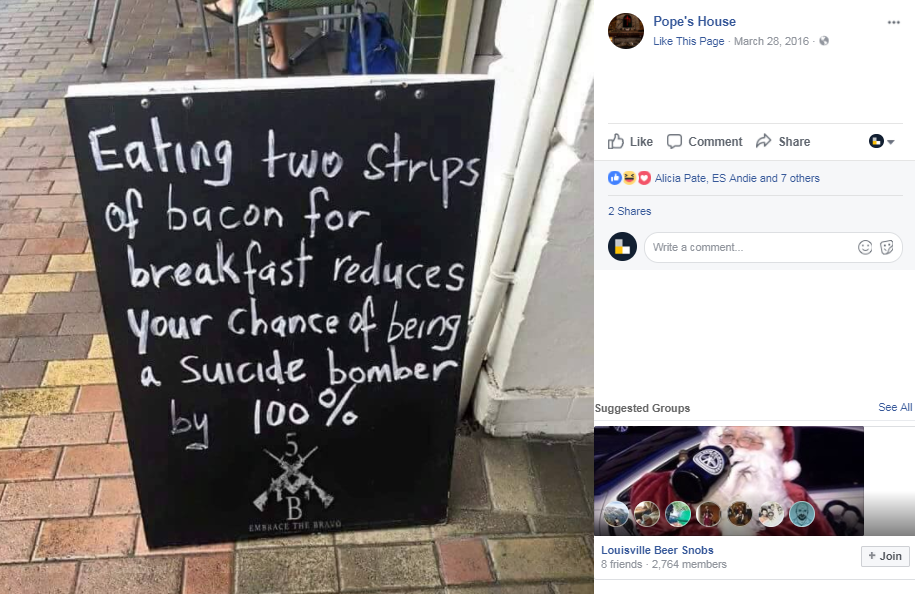 Eating two strips
of bacon for
breakfast reduces
your chance of being
a suicide bomber
by 100%
5
B
EMBRACE THE BRAVO
Pope's House
Like This Page · March 28, 2016 ·
Like Comment Share
Alicia Pate, ES Andie and 7 others
2 Shares
Write a comment...
Suggested Groups See All
Louisville Beer Snobs
8 friends · 2,764 members
+ Join